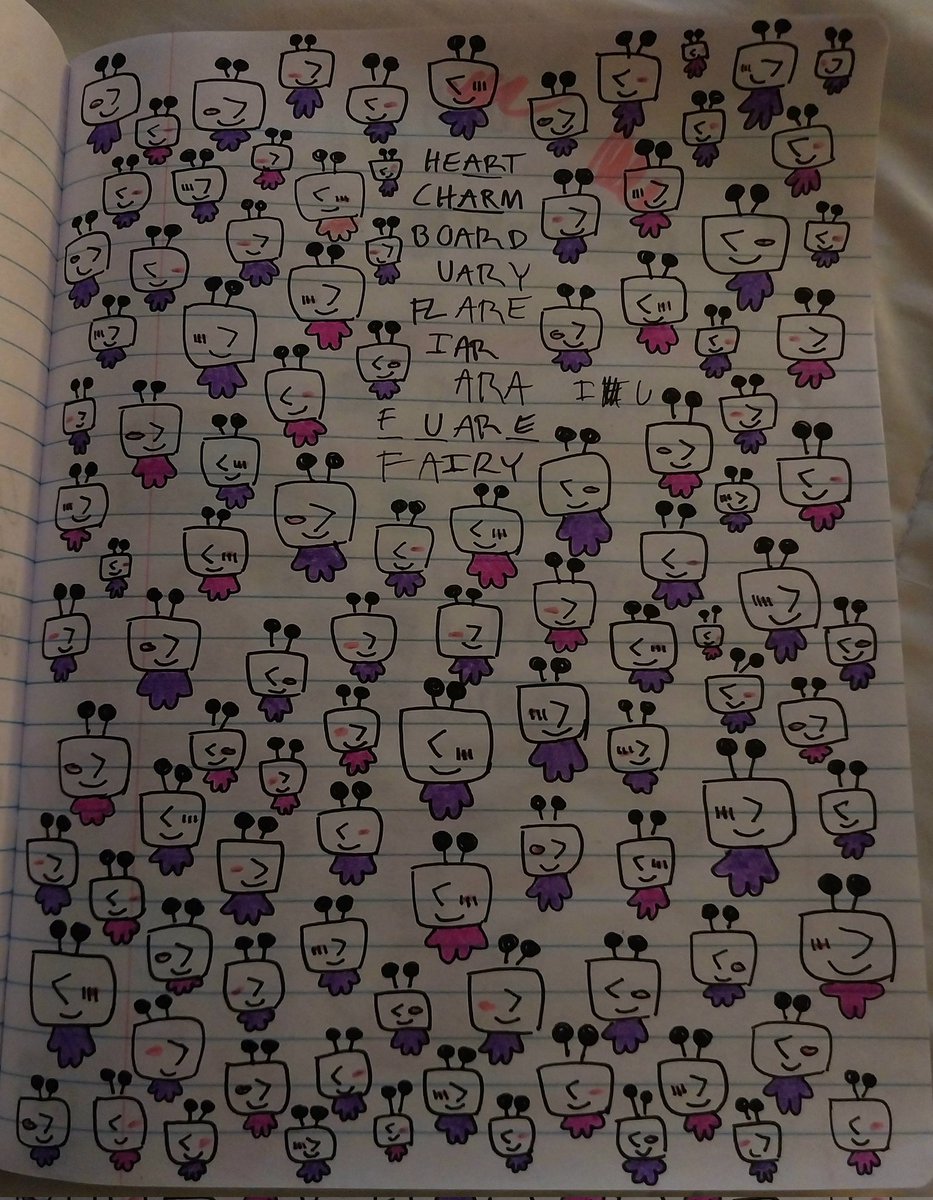 HEART
CHARM
BOARD
UARY
FLARE
IAR
ARA
I U
F UARE
FAIRY